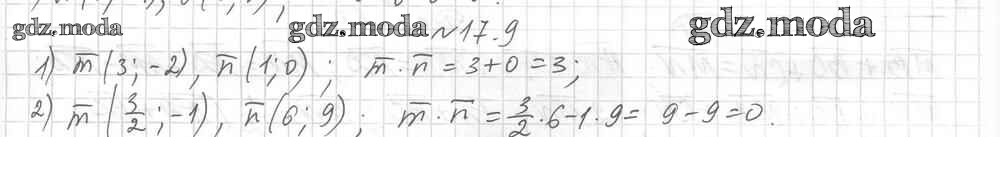 gdz.moda gdz.moda №17.9 gdz.moda
1) m̅ (3; -2), n̅ (1; 0); m̅ · n̅ = 3 + 0 = 3;
2) m̅ (3/2; -1), n̅ (6; 9); m̅ · n̅ = 3/2 · 6 - 1 · 9 = 9 - 9 = 0.